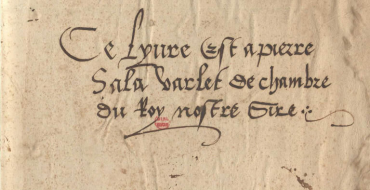 Ce lyure Est apierre
Sala varlet de chambre
du Roy nostre Sire